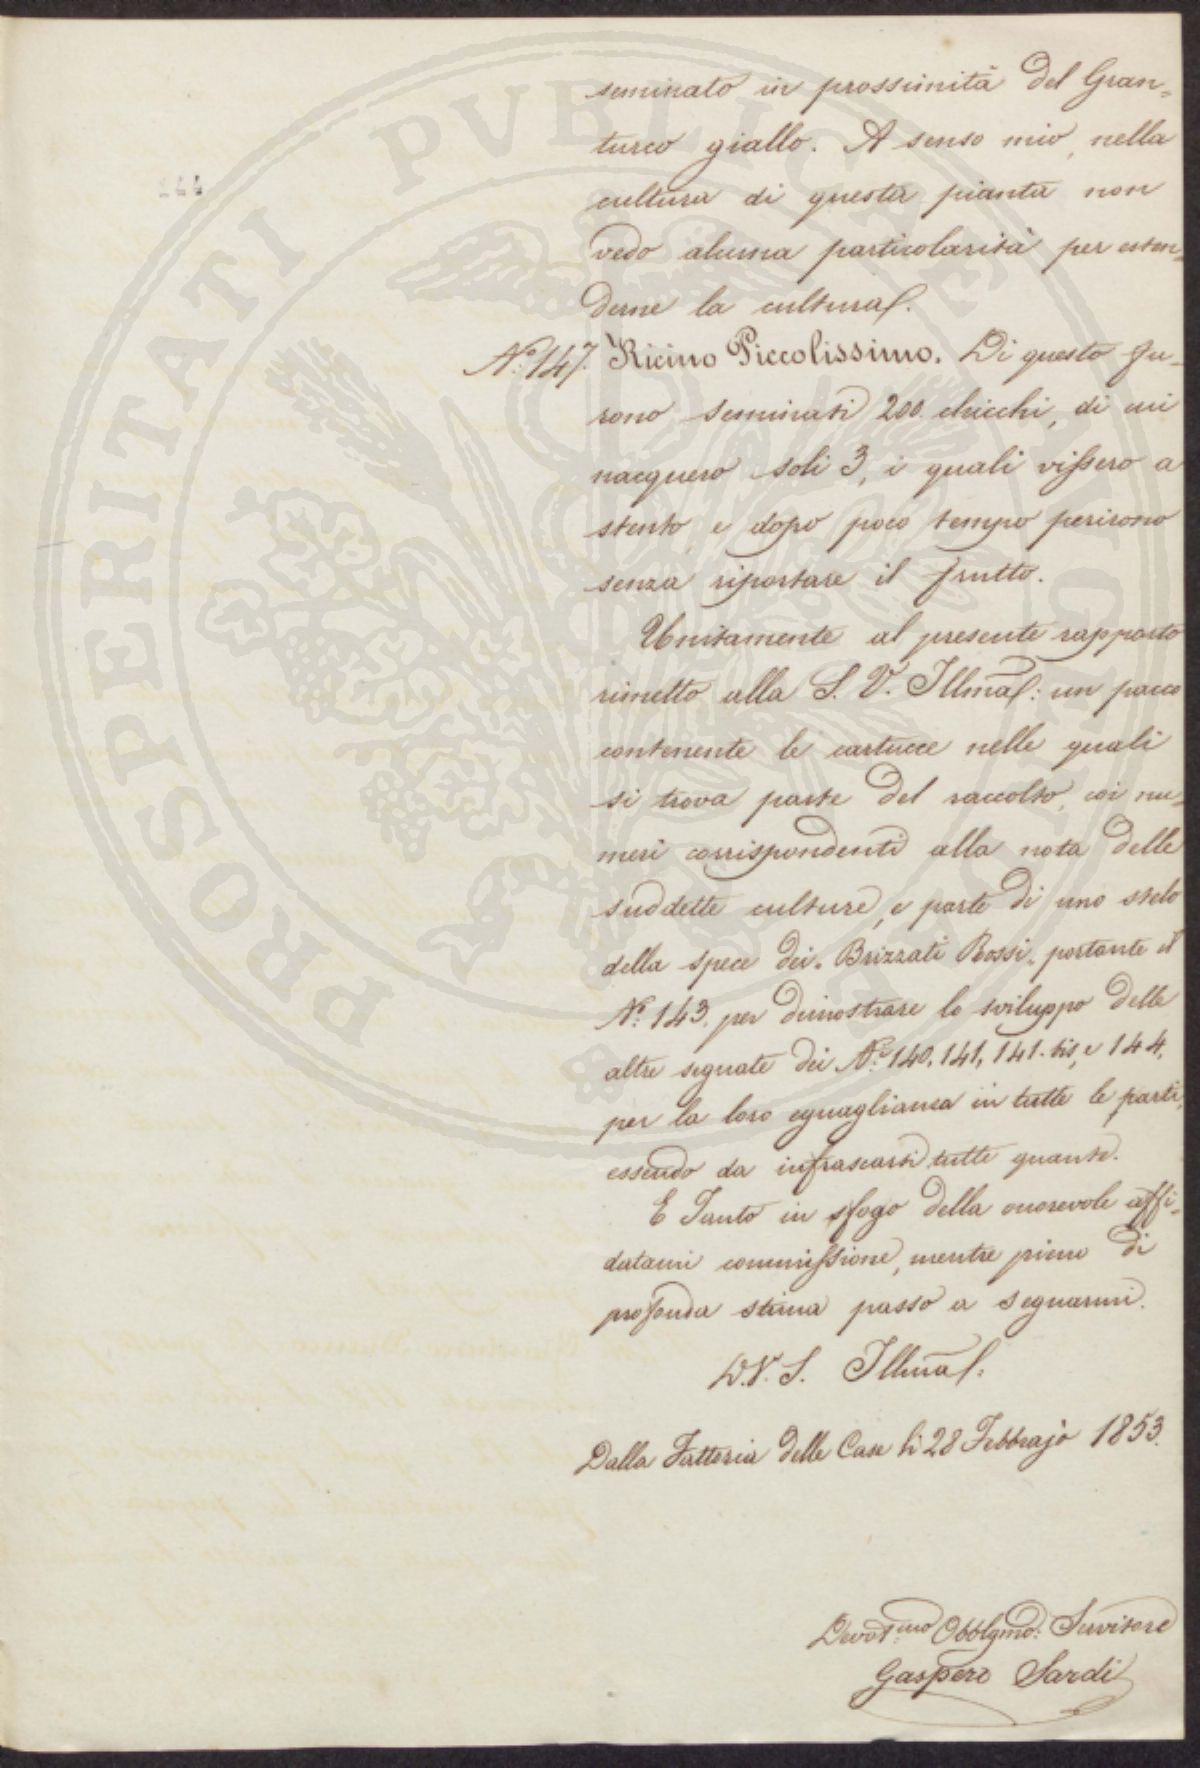 seminato in prossimità del Gran=
turco giallo. A senso mio, nella
cultura di questa pianta non
vedo alcuna particolarità per esten=
derne la cultura.
N.º 147. Ricino Piccolissimo. Di questo fu=
rono seminati 200 chicchi, di cui
nacquero soli 3, i quali vissero a
stento, e dopo poco tempo perirono
senza riportare il frutto.
Unitamente al presente rapporto
rimetto alla S. V. Illma: un pacco
contenente le cartucce nelle quali
si trova parte del raccolto, coi nu=
meri corrispondenti alla nota delle
suddette culture, e parte di uno stelo
della spece dei "Brizzati Rossi" portante il
N.º 143. per dimostrare lo sviluppo delle
altre segnate dei N.i 140, 141, 141. bis, e 144,
per la loro eguaglianza in tutte le parti,
essendo da infrascarsi tutte quante.
E Tanto in sfogo della onorevole affi=
datami commissione, mentre pieno di
profonda stima passo a segnarmi.
D. V. S. Illma:
Dalla Fattoria delle Case li 28 Febbrajo 1853.
Devot.mo Obblgmo: Servitore
Gaspero Sardi
PROSPERITATI PVBLICAE AVGENDAE